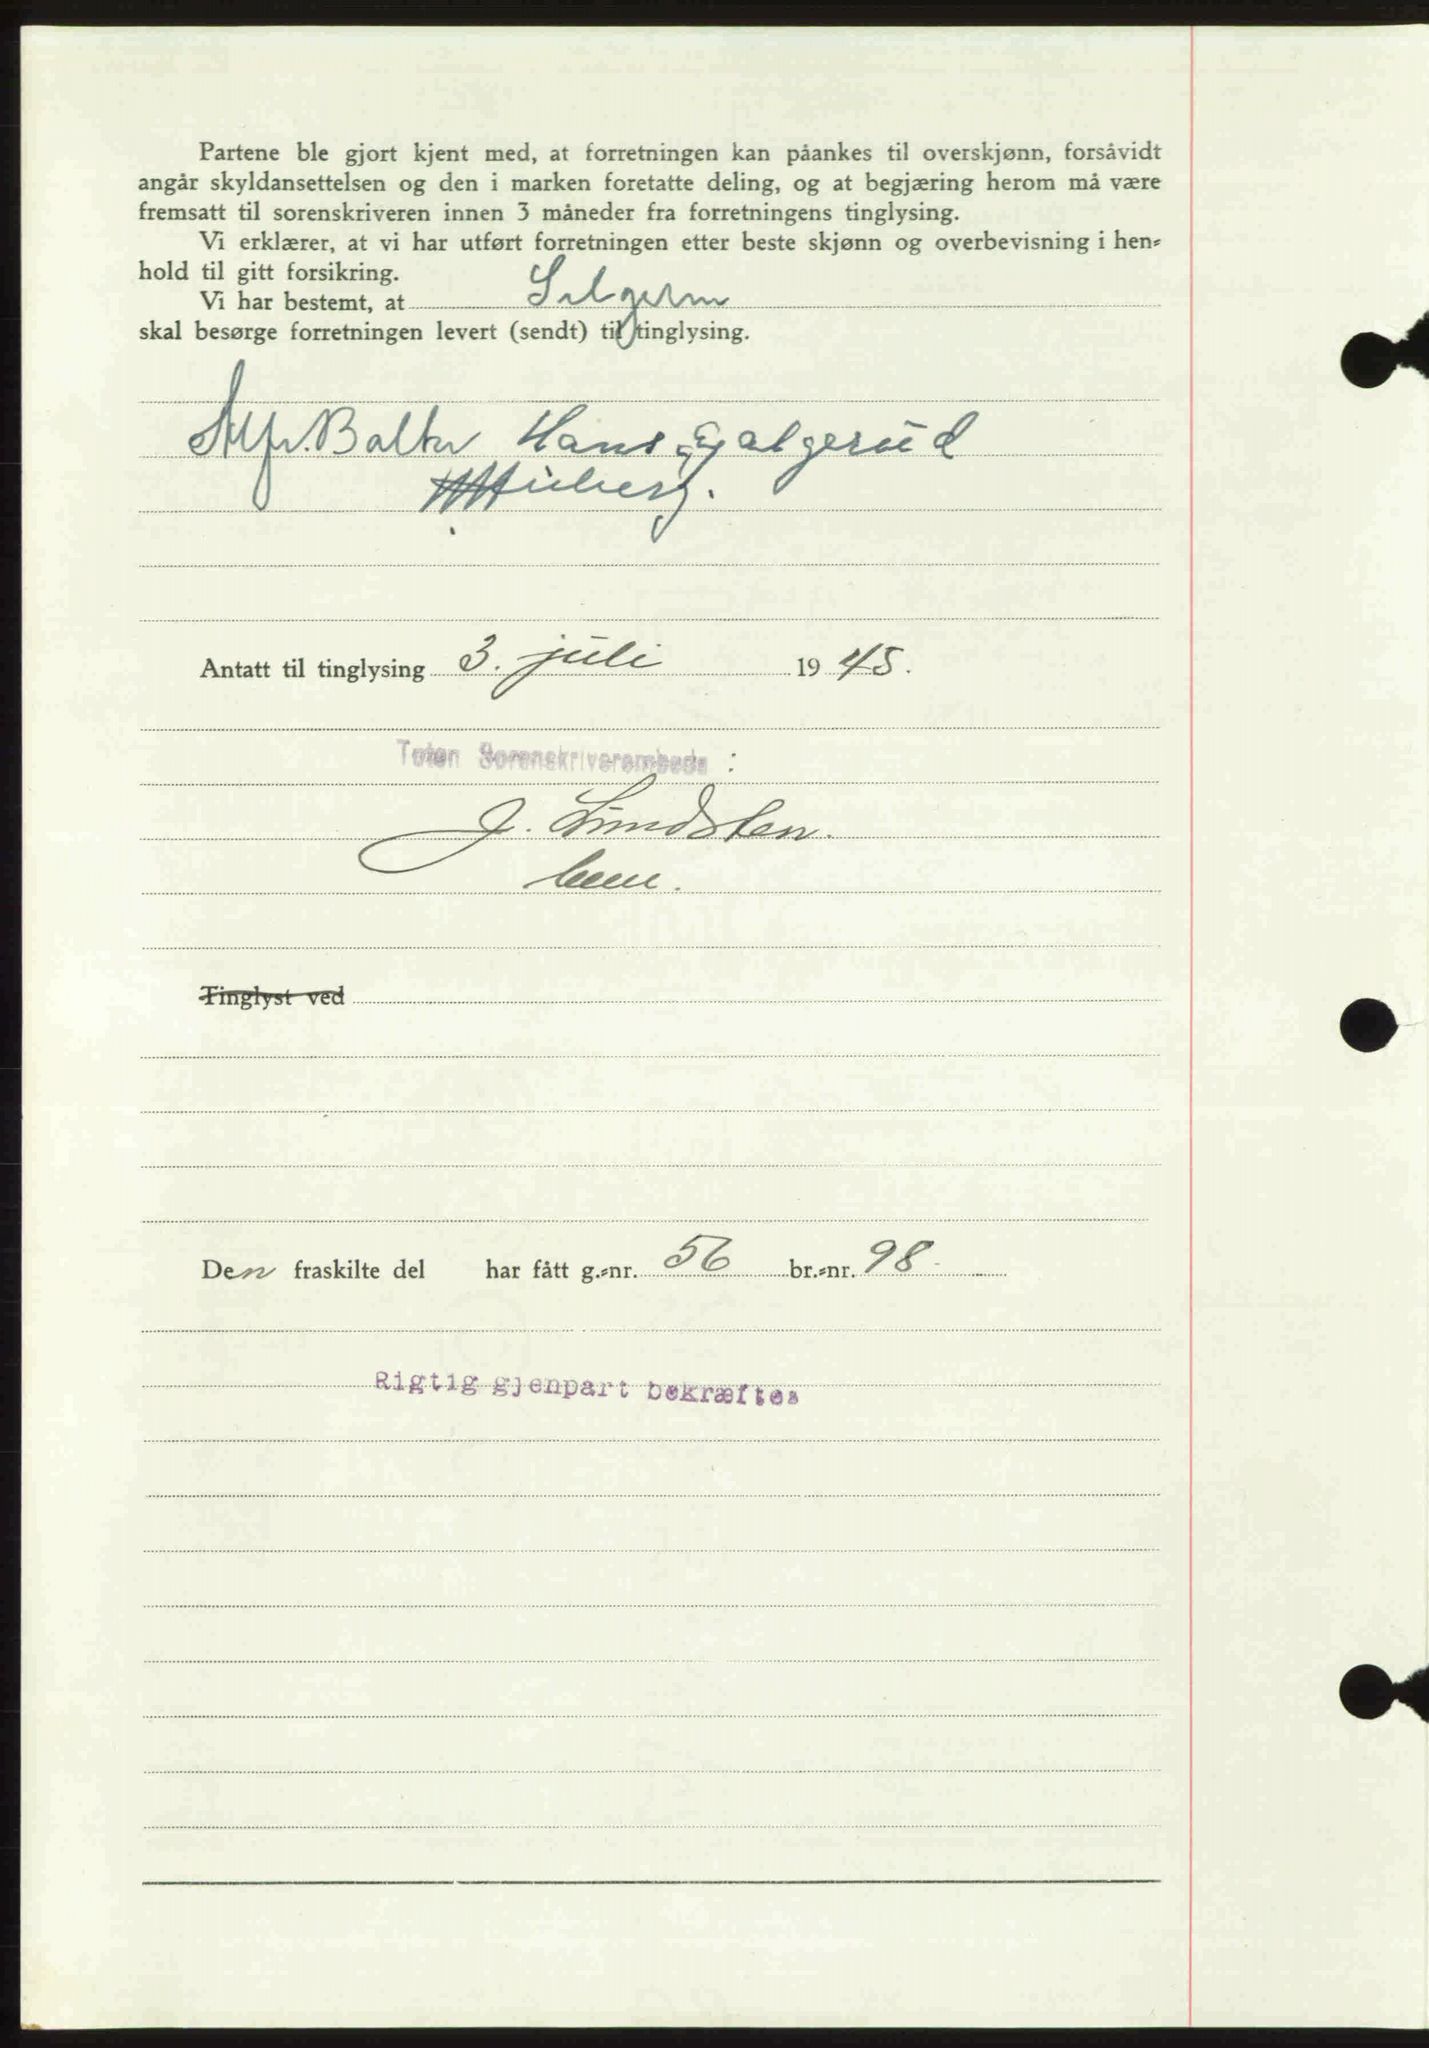 Partene ble gjort kjent med, at forretningen kan påankes til overskjønn, forsåvidt
angår skyldansettelsen og den i marken foretatte deling, og at begjæring herom må være
fremsatt til sorenskriveren innen 3 måneder fra forretningens tinglysing.
Vi erklærer, at vi har utført forretningen etter beste skjønn og overbevisning i hen-
hold til gitt forsikring.
Vi har bestemt, at Selgeren
skal besørge forretningen levert (sendt) til tinglysing.
Alfr. Balke Hans Gjalgerud
Antatt til tinglysing 3. juli 1945.
Toten Sorenskriverembede :
J. Lundsten.
Tinglyst ved
Den fraskilte del har fått g.-nr. 56 br.-nr. 98
Rigtig gjenpart bekræftes